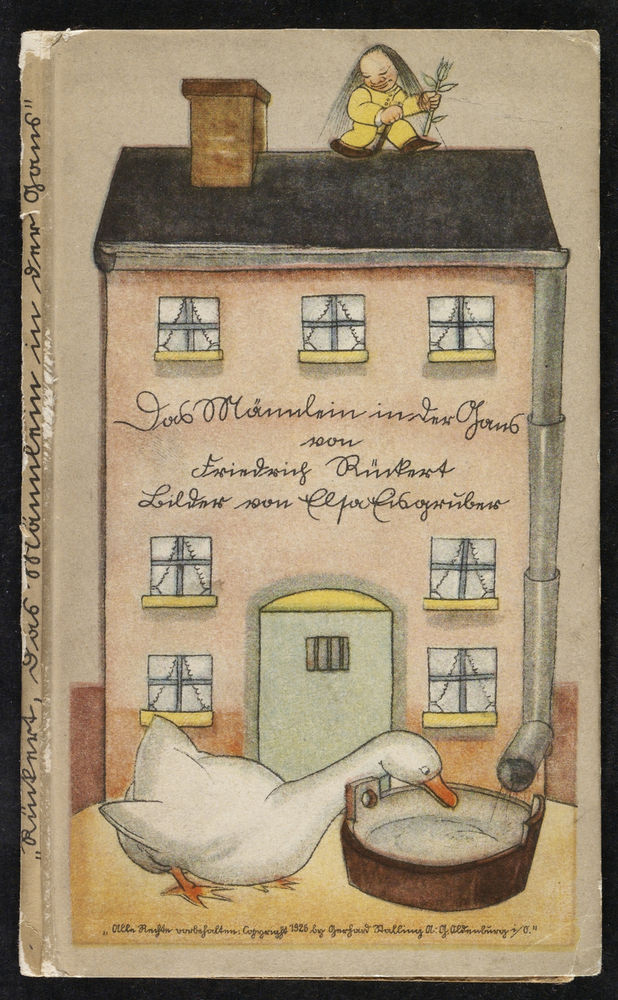 „Rückert, Das Männlein in der Gans"
Das Männlein in der Gans
von
Friedrich Rückert
Bilder von Elsa Eisgruber
„Alle Rechte vorbehalten: Copyright 1926 by Gerhard Stalling A. G. Oldenburg i/O."